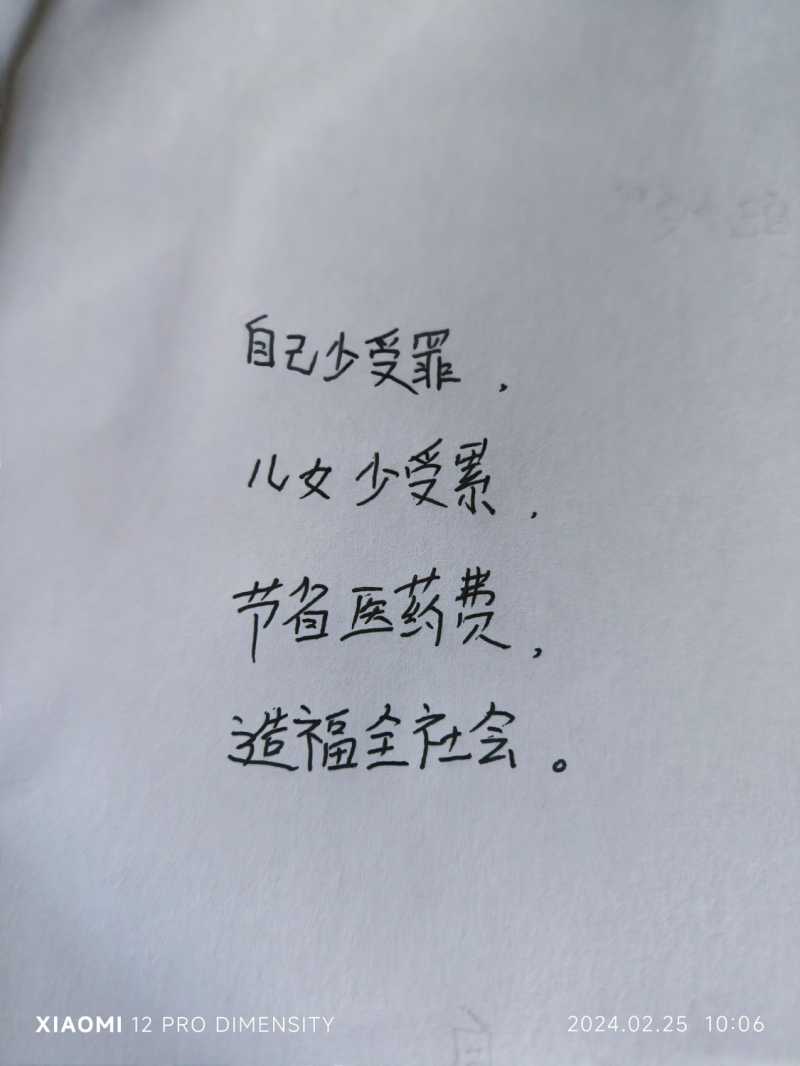 自己少受罪，
儿女少受累，
节省医药费，
造福全社会。
XIAOMI 12 PRO DIMENSITY
2024.02.25 10:06